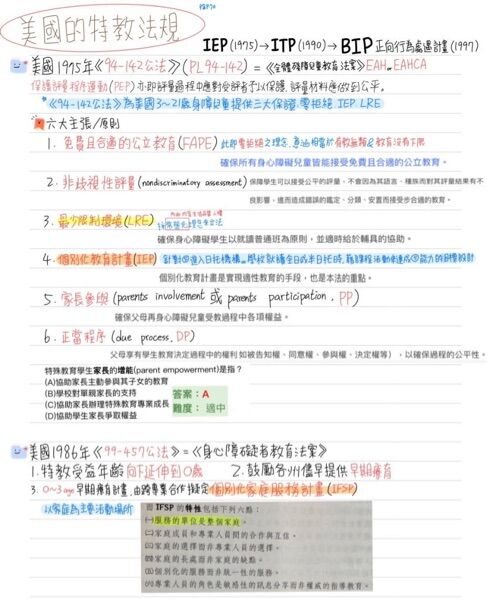 美國的特教法規
IEP (1975) → ITP (1990) → BIP 正向行為處遇計畫 (1997)
美國1975年《94-142公法》(PL 94-142) = 《全體殘障兒童教育法案》EAH、EAHCA
保護評量程序運動(PEP) 亦即評量過程中應對受評者予以保護,評量材料應做到公平。
*《94-142公法》為美國3~21歲身障兒童提供三大保證:零拒絕、IEP、LRE
六大主張/原則
1. 免費且合適的公立教育(FAPE) 此即零拒絕之理念,意涵相當於有教無類&教育沒有下限
確保所有身心障礙兒童皆能接受免費且合適的公立教育。
2. 非歧視性評量(nondiscriminatory assessment) 保障學生可以接受公平的評量,不會因為其語言、種族而對其評量結果有不
良影響,進而造成錯誤的鑑定、分類、安置而接受步合適的教育。
3. 最少限制環境(LRE)
確保身心障礙學生以就讀普通班為原則,並適時給於輔具的協助。
4. 個別化教育計畫(IEP)
個別化教育計畫是實現適性教育的手段,也是本法的重點。
5. 家長參與(parents involvement 或 parents participation, PP)
確保父母再身心障礙兒童受教過程中各項權益。
6. 正當程序(due process, DP)
父母享有學生教育決定過程中的權利 如被告知權、同意權、參與權、決定權等),以確保過程的公平性。
特殊教育學生家長的增能(parent empowerment)是指?
(A)協助家長主動參與其子女的教育
(B)學校對單親家長的支持
(C)協助家長辦理特殊教育專業成長
(D)協助學生家長爭取權益
答案:A
難度: 適中
美國1986年《99-457公法》=《身心障礙者教育法案》
1. 特教受益年齡向下延伸到0歲 2. 鼓勵各州儘早提供早期療育
3. 0~3歲早期療育計畫,由跨專業合作擬定個別化家庭服務計畫(IFSP)
以家庭為主要活動場所
而 IFSP 的特性包括下列六點:
㈠服務的單位是整個家庭。
㈡家庭成員和專業人員間的合作與互信。
㈢家庭的選擇而非專業人員的選擇。
㈣家庭的長處而非家庭的缺點。
㈤個別化的服務而非統一性的服務。
㈥專業人員的角色是敏感性的訊息分享而非權威的指導教育。